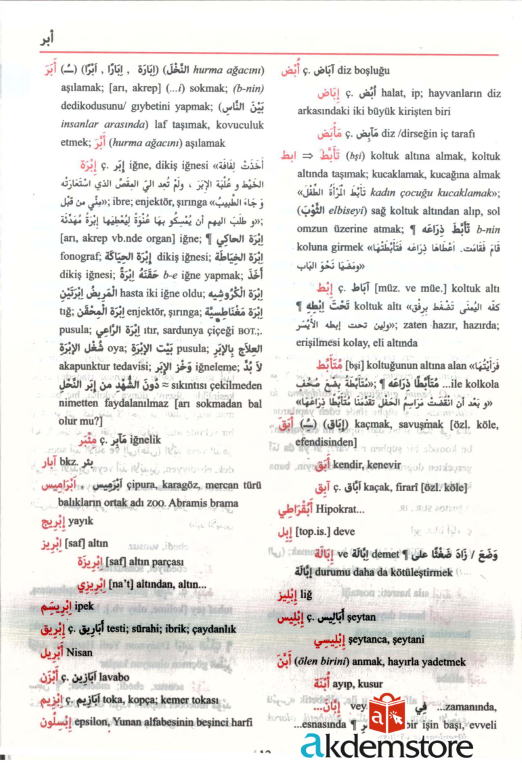 أبر
أَبَرَ (ـُـ) (أَبْرًا , اِبَارًا , اِبَارَة) (النَّخْلَ hurma ağacını)
aşılamak; [arı, akrep] (...i) sokmak; (b-nin)
dedikodusunu/ gıybetini yapmak; (بَيْنَ النَّاسِ
insanlar arasında) laf taşımak, kovuculuk
etmek; أَبَّرَ (hurma ağacını) aşılamak
إِبْرَة ç. إِبَر iğne, dikiş iğnesi «أَخَذَتْ لِفَافَة
الخَيْط وَ عُلْبَةَ الإِبَر ، وَلَمْ تَعُد الى المِقَصِّ الذي اسْتَعَارَتْهُ
مِنِّي من قَبْل»; ibre; enjektör, şırınga «وَ جَاءَ الطَّبِيبُ
وَ طَلَبَ اليهم أن يُمْسِكُو بها عُنْوَةً لِيُعْطِيَهَا إِبْرَةً مُهَدِّئَة»;
[arı, akrep vb.nde organ] iğne; ¶ إِبْرَة الحاكِي
fonograf; إِبْرَة الحِيَاكَة dikiş iğnesi; إِبْرَة الخِيَاطَة
dikiş iğnesi; حَقَنَهُ إِبْرَةً b-e iğne yapmak; أَخَذَ
المَرِيضُ إِبْرَتَيْنِ hasta iki iğne oldu; إِبْرَة الكُرُوشِيه
tığ; إِبْرَة المِحْقَن enjektör, şırınga; إِبْرَة مَغْنَاطِيسِيَّة
pusula; إِبْرَة الرَّاعِي ıtır, sardunya çiçeği BOT.;
شُغْل الإِبْرَة oya; بَيْت الإِبْرَة pusula; العِلاَج بِالإِبَر
akapunktur tedavisi; وَخْز الإِبَر iğneleme; لاَ بُدَّ
دُونَ الشُّهْدِ مِن إِبَرِ النَّحْلِ ≈ sıkıntısı çekilmeden
nimetten faydalanılmaz [arı sokmadan bal
olur mu?]
مِئْبَر ç. مَآبِر iğnelik
آبار bkz. بئر
أَبْرَامِيس , أَبْرَمِيس çipura, karagöz, mercan türü
balıkların ortak adı ZOO. Abramis brama
إِبْرِيج yayık
إِبْرِيز [saf] altın
إِبْرِيزَة [saf] altın parçası
إِبْرِيزِي [na't] altından, altın...
إِبْرِيسَم ipek
إِبْرِيق ç. أَبَارِيق testi; sürahi; ibrik; çaydanlık
أَبْرِيل Nisan
أَبْزَن ç. أَبَازِين lavabo
إِبْزِيم ç. أَبَازِيم toka, kopça; kemer tokası
إِبْسِلُون epsilon, Yunan alfabesinin beşinci harfi
أُبْض ç. آبَاض diz boşluğu
إِبَاض ç. أُبُض halat, ip; hayvanların diz
arkasındaki iki büyük kirişten biri
مَأْبِض ç. مَآبِض diz /dirseğin iç tarafı
ابط ⇒ تَأَبَّطَ (bşi) koltuk altına almak, koltuk
altında taşımak; kucaklamak, kucağına almak
«تَأَبُّطُ المَرْأَةِ الطِّفْلَ kadın çocuğu kucaklamak»;
(الثَّوْبَ elbiseyi) sağ koltuk altından alıp, sol
omzun üzerine atmak; ¶ تَأَبَّطَ ذِرَاعَهُ b-nin
koluna girmek «قَامَ فَقَامَت. أَعْطَاهَا ذِرَاعَه فَتَأَبَّطَتْهَا
وَمَضَيَا نَحْوَ البَاب»
إِبْط ç. آبَاط [müz. ve müe.] koltuk altı
تَحْتَ إِبْطِهِ ¶ koltuk altı «كفّه اليُمنَى تَضْغَط برِفْق
ولين تحت إبطه الأيْسَر»; zaten hazır, hazırda;
erişilmesi kolay, eli altında
مُتَأَبِّط [bşi] koltuğunun altına alan «فَرَأَيْتُهَا
مُتَأَبِّطَةً بِضْعَ صُحُفٍ»; ¶ مُتَأَبِّطًا ذِرَاعَهُ ...ile kolkola
«و بَعْدَ أن انْقَضَتْ مَرَاسِم الحَفْل تَقَدَّمْنَا مُتَأَبِّطًا ذِرَاعَهَا»
أَبَقَ (ـِـ) (إِبَاق) kaçmak, savuşmak [özl. köle,
efendisinden]
أَبَق kendir, kenevir
آبِق ç. أُبَّاق kaçak, firarî [özl. köle]
أَبُقْرَاطِي Hipokrat...
إِبِل [top.is.] deve
إِبَّالَة ve إِبَالَة demet ¶ وَضَعَ / زَادَ ضِغْثًا عَلى
إِبَّالَة durumu daha da kötüleştirmek
إِبْلِيز lığ
إِبْلِيس ç. أَبَالِيس şeytan
إِبْلِيسِي şeytanca, şeytani
أَبَّنَ (ölen birini) anmak, hayırla yadetmek
أُبْنَة ayıp, kusur
إِبَّانَ... vey فِي ...zamanında,
...esnasında ¶ bir işin başı, evveli
akdemstore